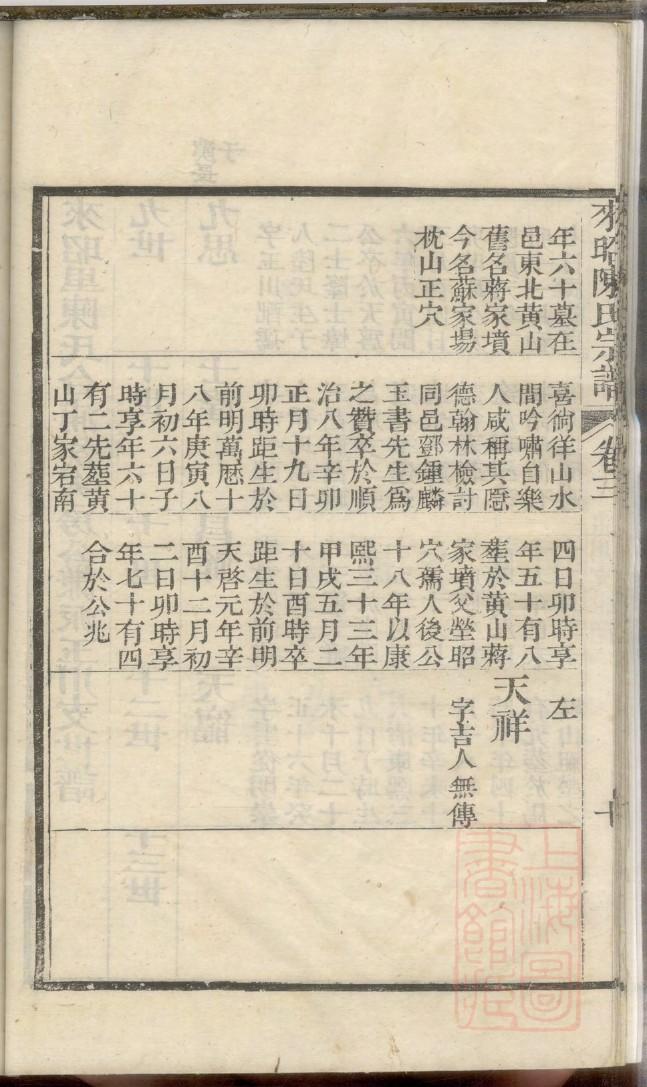 來昭陳氏宗譜
卷三
十
年六十墓在
邑東北黃山
舊名蔣家墳
今名蘇家場
枕山正穴
喜徜徉山水
間吟嘯自樂
人咸稱其隱
德翰林檢討
同邑鄧鍾麟
玉書先生爲
之贊卒於順
治八年辛卯
正月十九日
卯時距生於
前明萬曆十
八年庚寅八
月初六日子
時享年六十
有二先塟黃
山丁家宕南
四日卯時享
年五十有八
塟於黃山蔣
家墳父塋昭
穴孺人後公
十八年以康
熙三十三年
甲戌五月二
十日酉時卒
距生於前明
天啓元年辛
酉十二月初
二日卯時享
年七十有四
合於公兆
左
天祥
字吉人無傳
上海圖
書館藏